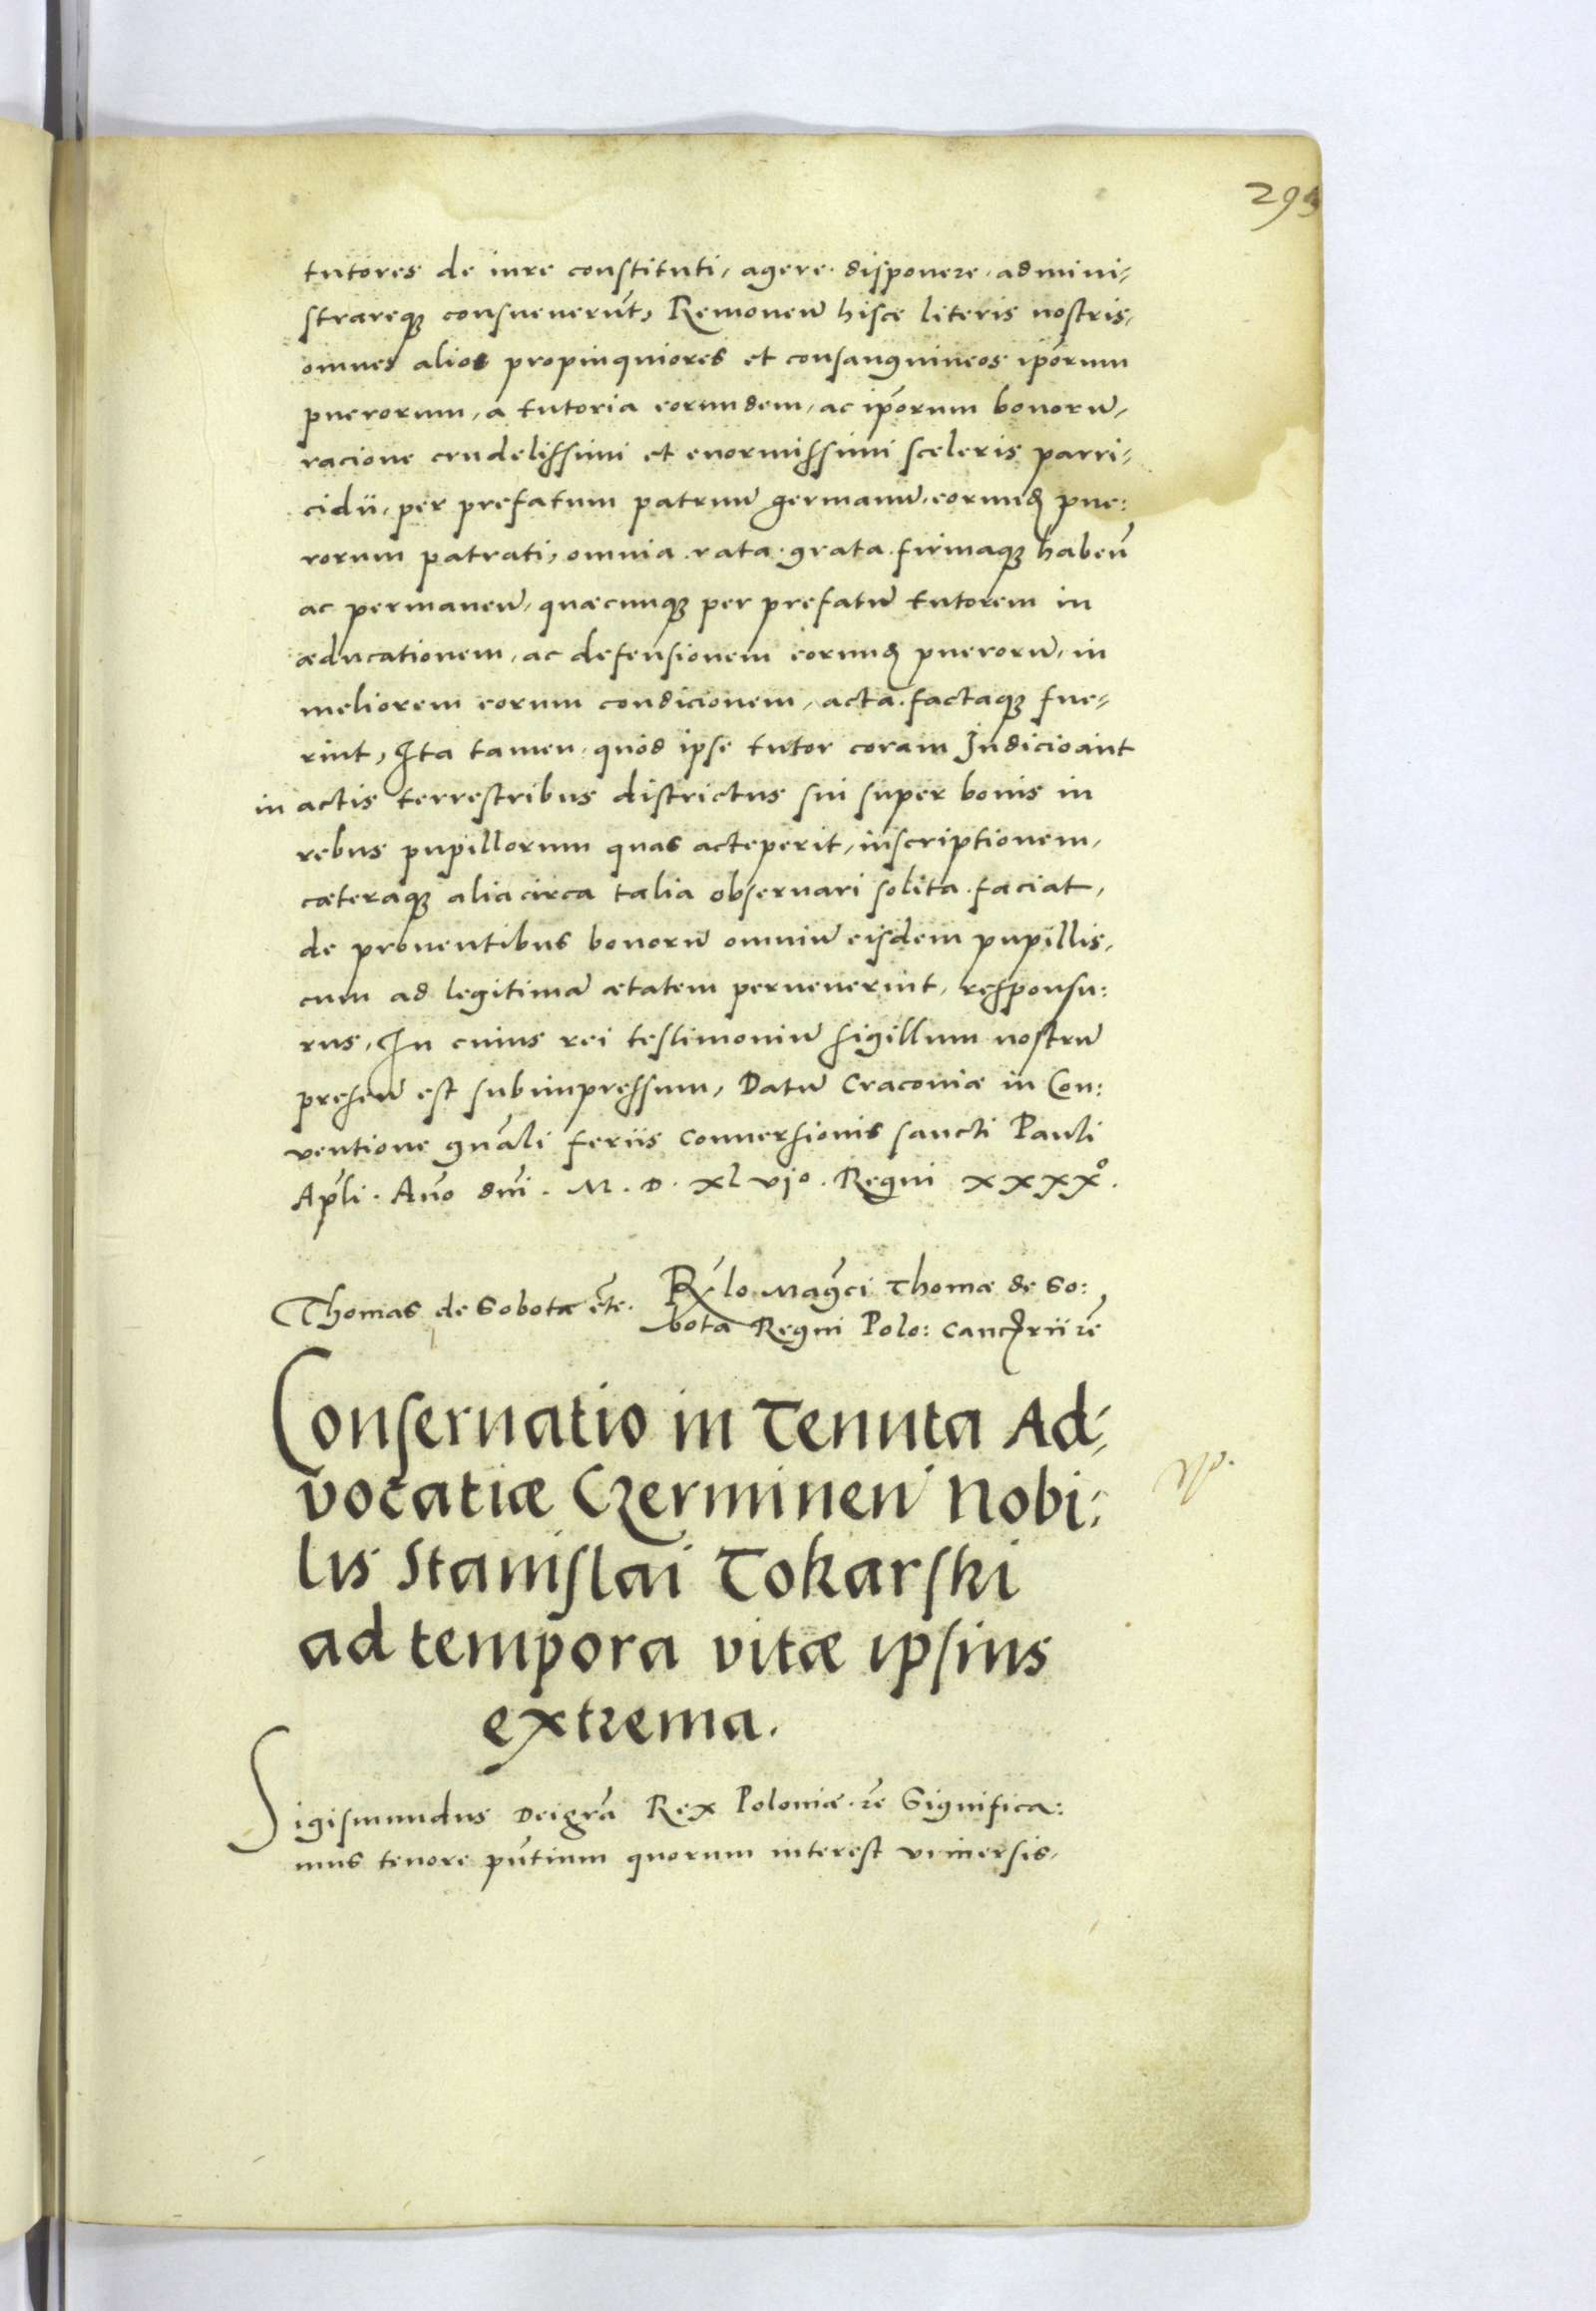 tutores de iure constituti, agere. disponere. admini-
strareq; consueuerūt, Remouen̄ hisce literis nostris,
omnes alios propinquiores et consanguineos ip̄orum
puerorum, a tutoria eorundem, ac ip̄orum bonorū,
racione crudelissimi et enormissimi sceleris parri-
cidii, per prefatum patruū germanū, eorundꝫ pue:
rorum patrati, omnia. rata. grata. firmaq; haben̄
ac permanen̄, quæcunq; per prefatū tutorem in
æducationem, ac defensionem eorundꝫ puerorū, in
meliorem eorum condicionem, acta. factaq; fue-
rint, Ita tamen. quod ipse tutor coram Iudicio aut
in actis terrestribus districtus sui super bonis in
rebus pupillorum quas acteperit, inscriptionem,
cæteraq; alia circa talia obseruari solita. faciat,
de prouentibus bonorū omniū eisdem pupillis,
cum ad legitimā ætatem peruenerint, responsu:
rus, In cuius rei testimoniū sigillum nostrū
presen̄ est subimpressum, Datū Cracouiæ in Con:
ventione gn̄ali feriis Conuersionis sancti Pauli
Ap̄li. An̄o dn̄i. M. D. xl vjo. Regni xxxxo.
Thomas de Sobota etc̄.
Rẽlo Mag̃ci Thomæ de So:
bota Regni Polo: Cancꝉrii ꝛc̄
Conseruatio in Tenuta Ad-
vocatiæ Czerminen̄ Nobi:
lis Stanislai Tokarski
ad tempora vitæ ipsius
extrema.
Sigismundus Dei gr̄a Rex Poloniæ. ꝛc̄ Significa:
mus tenore pn̄tium quorum interest vniuersis,